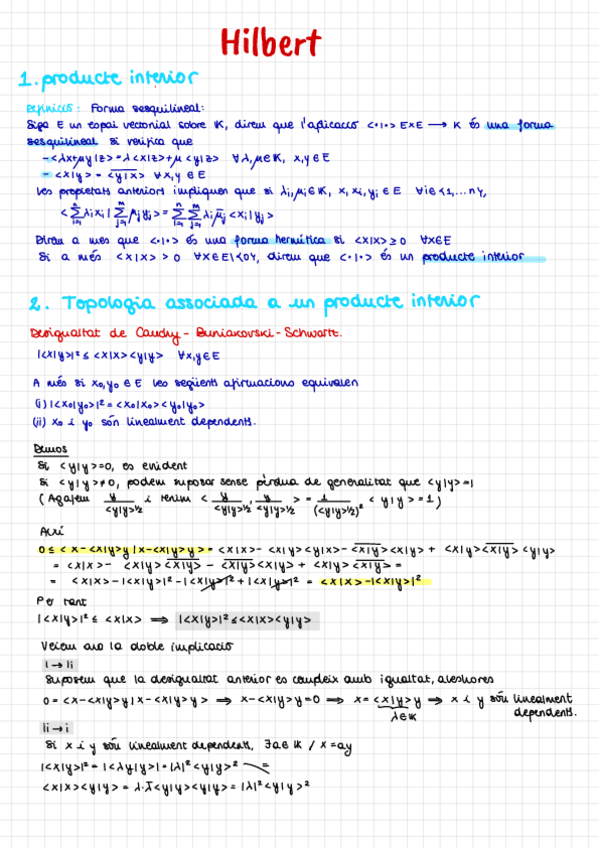 Hilbert
1. producte interior
Definició: Forma sesquilineal:
Sigui E un espai vectorial sobre K, direm que l'aplicació <·|·> E×E → K és una forma
sesquilineal si verifica que
- <λx+μy|z> = λ<x|z>+μ<y|z> ∀λ,μ∈K, x,y∈E
- <x|y> = \overline{<y|x>} ∀x,y∈E
Les propietats anteriors impliquen que si λi,μj∈K, x, xi,yi∈E ∀i∈{1,...n},
<∑_{i=1}^{n} λi xi | ∑_{j=1}^{m} μj yj> = ∑_{i=1}^{n} ∑_{j=1}^{m} λi \overline{μj} <xi|yj>
Direm a més que <·|·> és una forma hermítica si <x|x> ≥ 0 ∀x∈E
Si a més <x|x> > 0 ∀x∈E\{0}, direm que <·|·> és un producte interior
2. Topologia associada a un producte interior
Desigualtat de Cauchy - Buniakovski - Schwartz.
|<x|y>|² ≤ <x|x><y|y> ∀x,y∈E
A més si x₀,y₀∈E les següents afirmacions equivalen
(i) |<x₀|y₀>|² = <x₀|x₀><y₀|y₀>
(ii) x₀ i y₀ són linealment dependents.
Demos
Si <y|y>=0, es evident
Si <y|y>≠0, podem suposar sense pèrdua de generalitat que <y|y>=1
(Agafem y/<y|y>^{1/2} i tenim <y/<y|y>^{1/2}, y/<y|y>^{1/2}> = 1/(<y|y>^{1/2})² <y|y>=1)
Així
0 ≤ <x-<x|y>y|x-<x|y>y> = <x|x> - <x|y><y|x> - \overline{<x|y>}<x|y> + <x|y>\overline{<x|y>}<y|y>
= <x|x> - <x|y>\overline{<x|y>} - \overline{<x|y>}<x|y> + <x|y>\overline{<x|y>} =
= <x|x> - |<x|y>|² - |<x|y>|² + |<x|y>|² = <x|x> - |<x|y>|²
Per tant
|<x|y>|² ≤ <x|x> ⟹ |<x|y>|² ≤ <x|x><y|y>
Veiem ara la doble implicació
i → ii
Suposem que la desigualtat anterior es compleix amb igualtat, aleshores
0 = <x-<x|y>y|x-<x|y>y> ⟹ x-<x|y>y=0 ⟹ x=<x|y>y ⟹ x i y són linealment
λ∈K dependents.
ii → i
Si x i y són linealment dependents, ∃a∈K / x=ay
|<x|y>|² = |<λy|y>| = |λ|²<y|y>² =
<x|x><y|y> = λ·\overline{λ}<y|y><y|y> = |λ|²<y|y>²